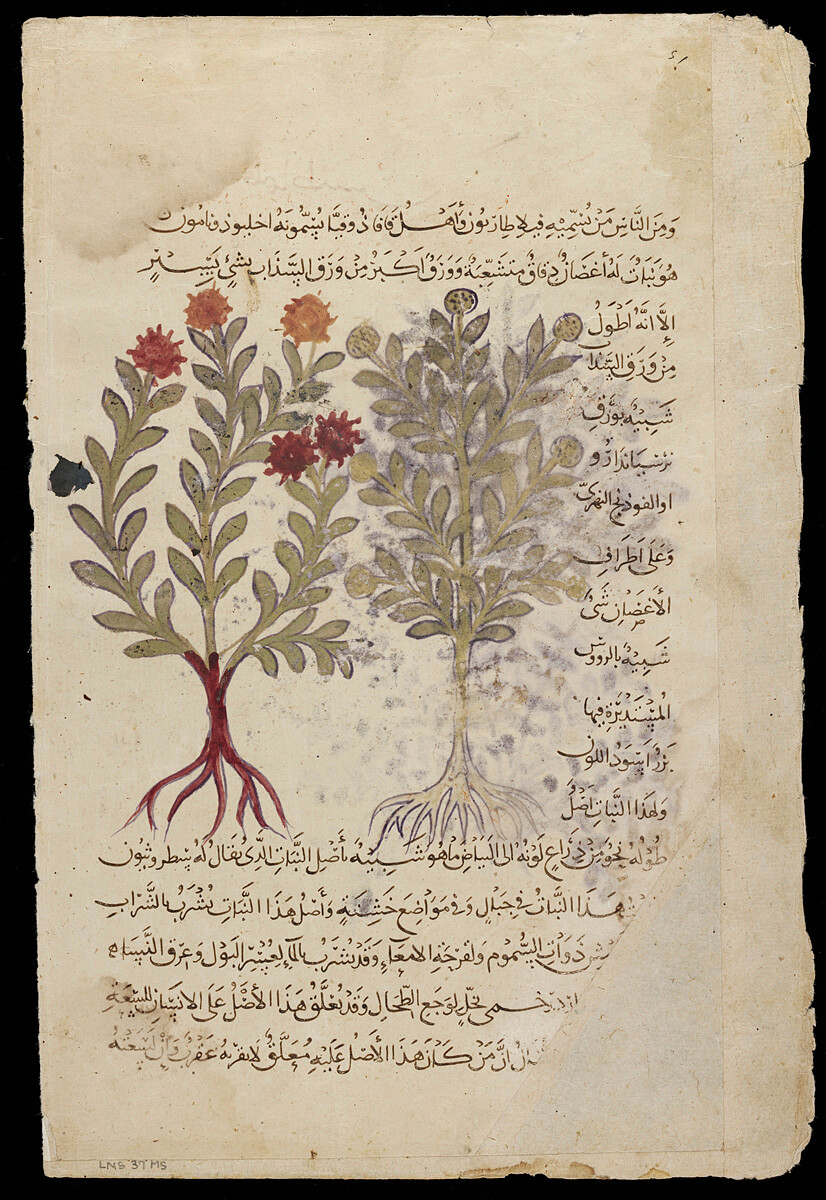 وَمِنَ النَّاسِ مَنْ يُسَمِّيْهِ وَأَهْلُ يُسَمُّونَهُ
هُوَ نَبَاتٌ لَهُ أَغْصَانٌ دِقَاقٌ مُتَشَعِّبَةٌ وَوَرَقٌ أَكْبَرُ مِنْ وَرَقِ السَّذَابِ بِشَيْءٍ يَسِيْرٍ
إِلَّا أَنَّهُ أَطْوَلُ
مِنْ وَرَقِ السَّذَابِ
شَبِيْهٌ بِوَرَقِ
او الفوذنج النهرىّ
وَعَلَى أَطْرَافِ
الأَغْصَانِ شَىْءٌ
شَبِيْهٌ بالرووس
المُسْتَدِيْرَةِ فِيها
بَزْرٌ أَسْوَدُ اللون
وَلهَذَا النَّبَاتِ أَصْلٌ
طُولُهُ نَحْوٌ مِنْ ذِرَاعٍ لَوْنُهُ الى البَيَاضِ مَا هُوَ شَبِيْهٌ بأَصْلِ النَّبَاتِ الَّذِى يُقَالُ لَهُ
هَذَا النَّبَاتُ فى جِبَالٍ وَفى مَوَاضِعَ خَشِنَةٍ وَأَصْلُ هَذَا النَّبَاتِ يُشْرَبُ بِالشَّرَابِ
ذَوَاتِ السُّمُومِ وَلِقَرْحَةِ الامعَاءِ وَقَدْ يُشْرَبُ بالمَاءِ لِعُسْرِ البَوْلِ وَعِرْقِ النَّسَاء
بخَلٍّ لِوَجَعِ الطِّحَالِ وَقَدْ يُعَلَّقُ هَذَا الأَصْلُ عَلَى الانسَانِ لِلَسْعَةِ
انَّ مَنْ كَانَ هَذَا الأَصْلُ عَلَيْهِ مُعَلَّقٌ لَا يَقْرَبُهُ عَقْرَبٌ وَإِنْ لَسَعَتْهُ
LNS 37 MS